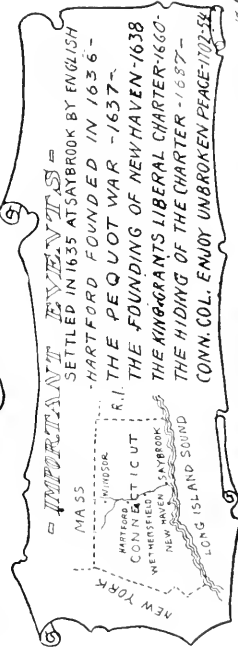 - IMPORTANT EVENTS -
SETTLED IN 1635 AT SAYBROOK BY ENGLISH
-HARTFORD FOUNDED IN 1636-
THE PEQUOT WAR -1637-
THE FOUNDING OF NEW HAVEN-1638
THE KING GRANTS LIBERAL CHARTER-1660-
THE HIDING OF THE CHARTER-1687-
CONN. COL. ENJOY UNBROKEN PEACE-1702-54
MASS
NEW YORK
WINDSOR
R.I.
HARTFORD
CONNECTICUT
WETHERSFIELD
NEW HAVEN
SAYBROOK
LONG ISLAND SOUND